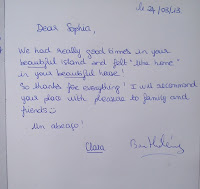 le 27/08/13
Dear Sophia,
We had really good times in your
beautiful island and felt "like home"
in your beautiful house!
So thanks for everything! I will recommend
your place with pleasure to family and
friends
Un abrazo!
Clara